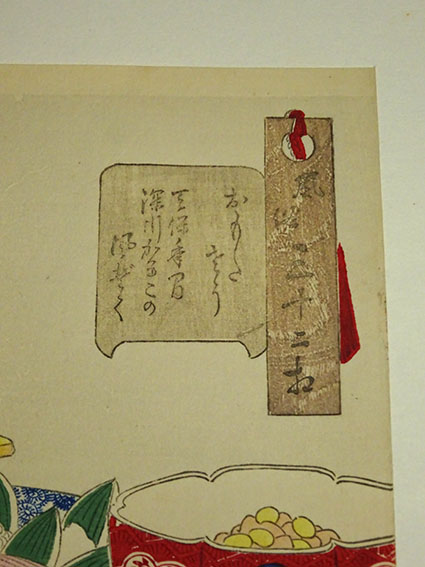 風俗三十二相
おもたさう
天保年間
深川かるこの
風ぞく